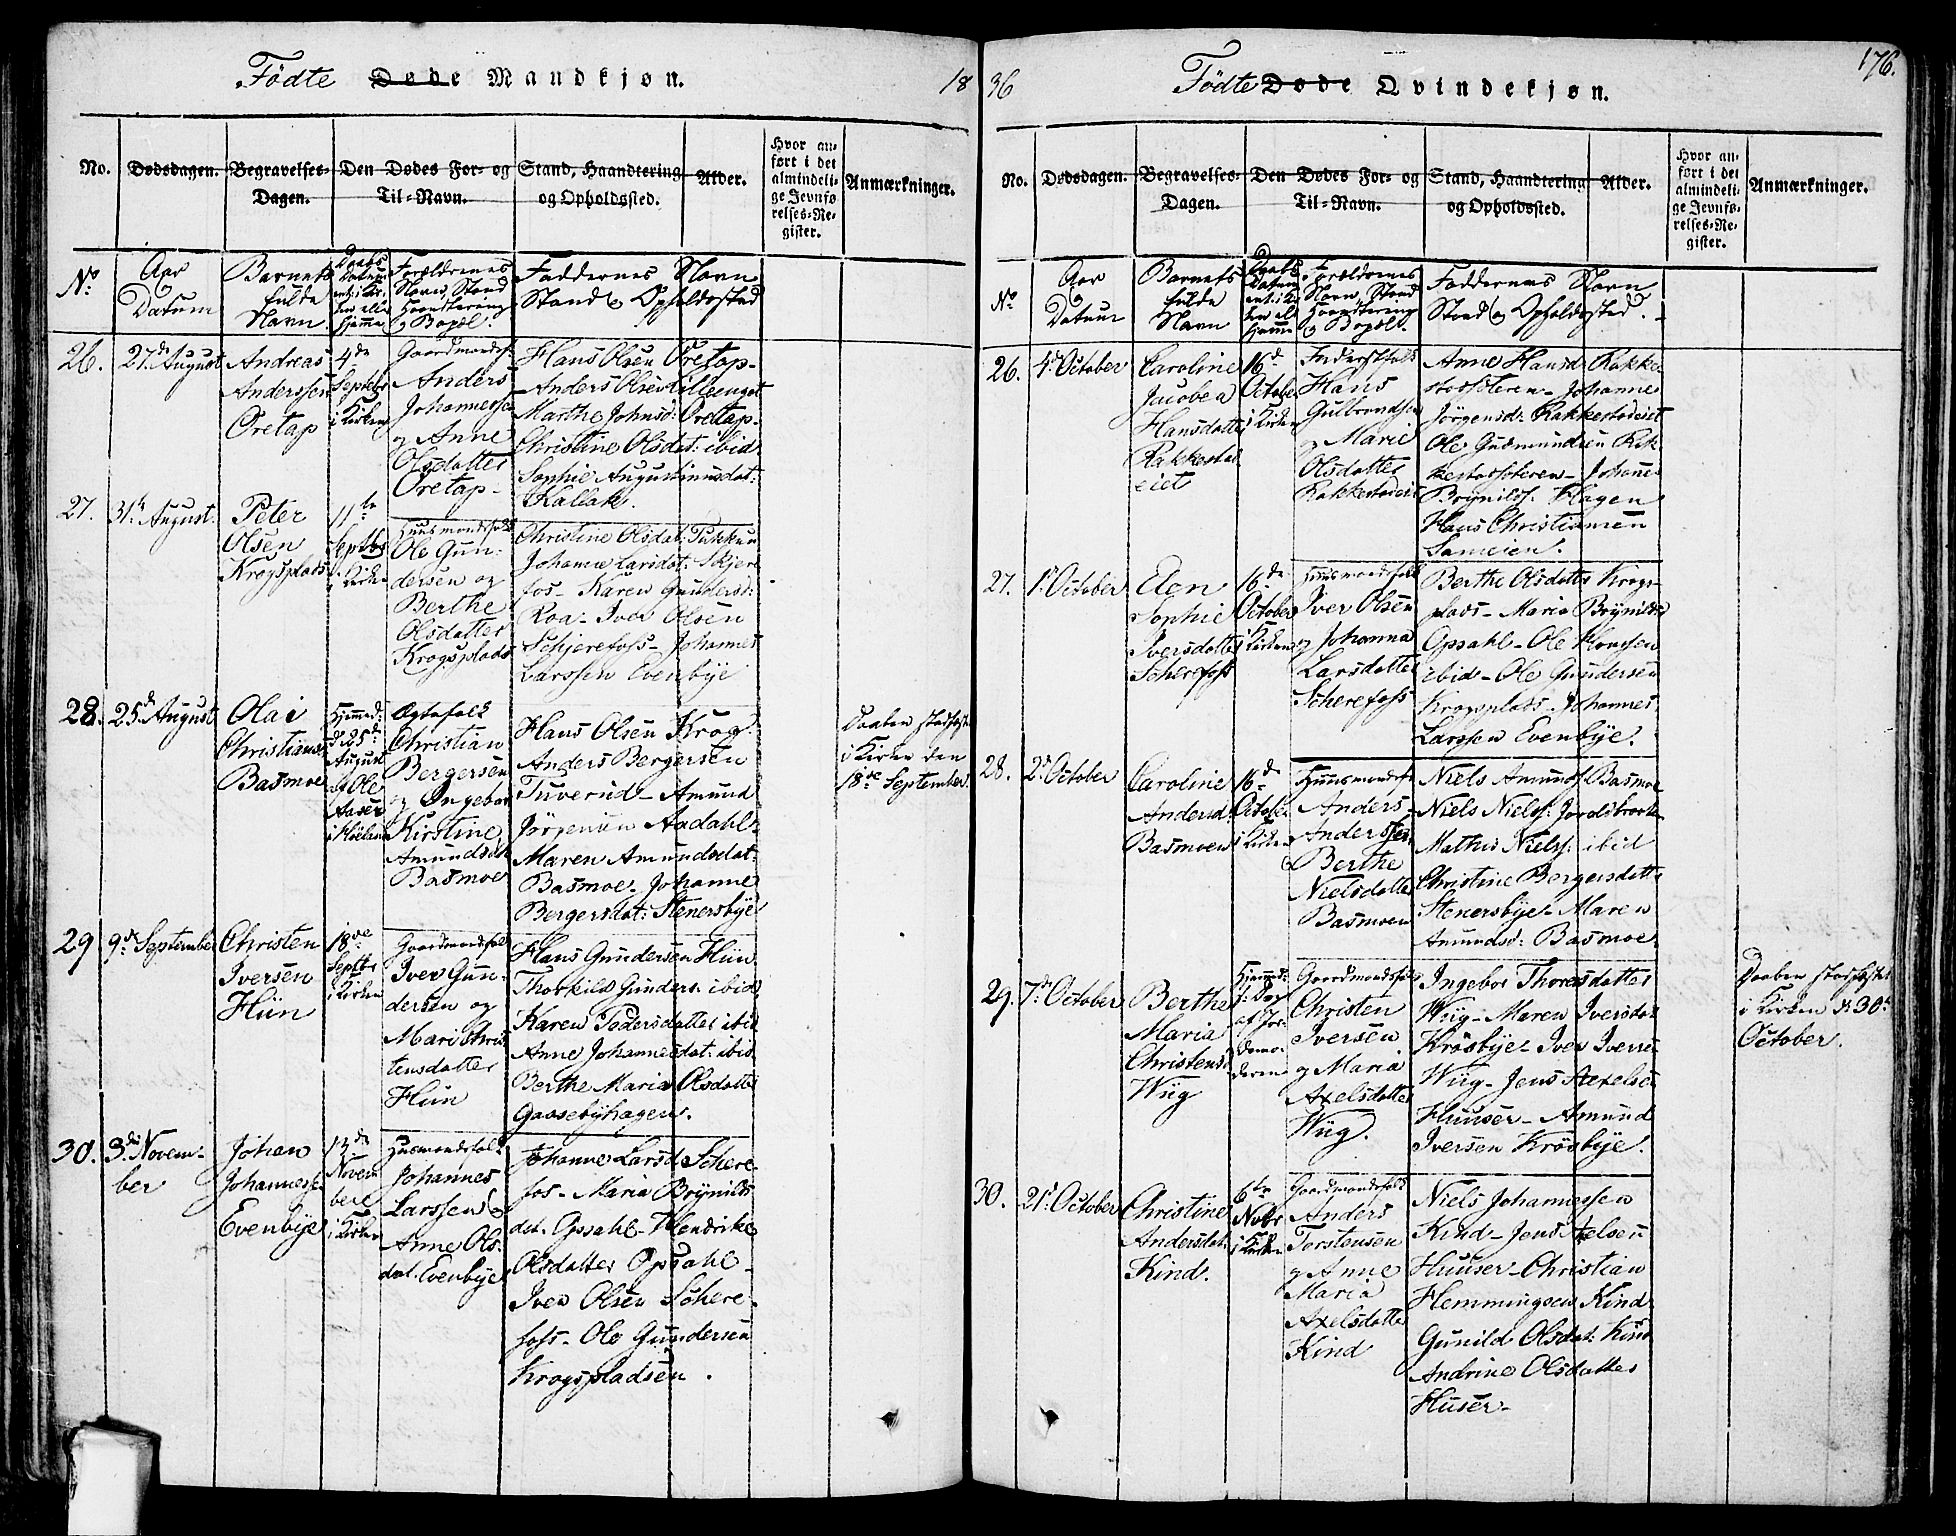 Födte Døde Mandkjøn.
18
No.
Dødsdagen.
Begravelses-
Dagen.
Den Dødes For- og
Til-Navn.
Stand, Haandtering
og Opholdssted.
Alder.
Hvor an-
ført i det
almindeli-
ge Jevnfø-
relses-Re-
gister.
Anmærkninger.
No
Aar
&
Datum
Barnets
fulde
Navn
Daabs
Datum
ent: i Kir
ken ell:
hjemme
Forældrenes
Navn, Stand
Haandtering
og Bopæl.
Faddernes Navn
Stand & Opholdssted
26.
27de August
Andreas
Anderssen
Oretap
4de
Septebr
i Kirken
Gaardmandsf:
Anders
Johannessen
og Anne
Olsdatter
Oretap-
Hans Olsen Oretap-
Anders Olsen Lilleenget
Marthe Johnsd: Oretap-
Christine Olsdat: ibid
Sophie Augustinusdat:
Kallak.
27.
31te August.
Peter
Olsen
Krogsplads
11te
Septbr
i Kirken
Huusmandsfolk
Ole Gun-
dersen og
Berthe
Olsdatter
Krogsplads
Christine Olsdat: Tukkun
Johanne Larsdat: Skjere
fos- Karen Gundersd:
Roa- Iver Olsen
Schjerefoss- Johannes
Larssen Evenbye
28.
25de August
Olai
Christians:
Basmoe
Hjemmed:
d. 25de
August
af Ole
Aaser
i Höeland
Ægtefolk
Christian
Bergersen
og Ingebor
Kirstine
Amundsdat
Basmoe
Hans Olsen Krog-
Anders Bergersen
Tuverud- Amund
Jörgensen Aadahl-
Maren Amundsdat:
Basmoe- Johanne
Bergersdat: Stenersbye
Daaben stadfæstet
i Kirken den
18de September.
29
9de September
Christen
Iversen
Hün
18de
Septbr
i Kirken
Gaardmandsfolk
Iver Gun-
dersen og
Mari Chris
tensdatter
Hün
Hans Gundersen Hün
Thorkild Gunders: ibid
Karen Pedersdatter ibid
Anne Johannesdat: ibid
Berthe Maria Olsdatter
Gaasebyhagen.
30.
3de Novem-
ber
Johan
Johannesse
Evenbye
13de
Novem
ber
i Kirken
Husmandsfolk
Johannes
Larssen &
Anne Ols:
dat. Evenbye
Johanne Larsd Schere-
fos- Maria Brynilds
dat. Opsahl- Hendrike
Olsdatter Opsahl-
Iver Olsen Schere-
foss- Ole Gundersen
Krogspladsen.
36
Födte Døde Qvindekjøn.
176.
No.
Dødsdagen.
Begravelses-
Dagen.
Den Dødes For- og
Til-Navn.
Stand, Haandtering
og Opholdssted.
Alder.
Hvor an-
ført i det
almindeli-
ge Jevnfø-
relses-Re-
gister.
Anmærkninger.
No
Aar
&
Datum
Barnets
fulde
Navn
Daabs
Datum
ent: i Kir
ken el:
hjemme
Forældrenes
Navn, Stand
Haandtering
og Bopæl.
Faddernes Navn
Stand og Opholdssted.
26.
4de October
Caroline
Jacobea
Hansdatter
Rakkestad
eiet
16de
October
i Kirken
Inderstfolk
Hans
Gulbrandsen
og Marie
Olsdatter
Rakkestadeiet
Anne Hansd Rakke
stadsæteren- Johanne
Jörgensd: Rakkestadeiet
Ole Gudmundsen Rak
kestadsæteren- Johanne
Brynilds: Hagen
Hans Christiansen
Sameien.
27.
1de October
Elen
Sophie
Iversdatter
Scherefoss
16de
October
i Kirken
Huusmandsfolk
Iver Olsen
og Johanna
Larsdatter
Scherefoss
Berthe Olsdatter Krogs-
plads- Maria Brynilds
Opsahl- Ole Hanssen
ibid- Ole Gundersen
Krogsplads. Johannes
Larssen Evenbye.
28.
2de October
Caroline
Andersd:
Basmoen
16de
October
i Kirken
Huusmandsfo
Anders
Anderssen
& Berthe
Nielsdatter
Basmoen
Niels Amunds Basmoe
Niels Niels: Jordsbraate
Mathis Niels: ibid
Christine Bergersdatter
Stenersbye- Maren
Amundsd: Basmoe-
29.
7de October
Berthe
Maria
Christensd
Wüg
Hjemmed:
af Jor-
demo-
deren
Gaardmandsfolk
Christen
Iversen
og Maria
Axelsdatter
Wüg.
Ingebor Thoresdatter
Wüg- Maren Iversdat
Krösbye- Iver Iversen
Wüg- Jens Axelsen
Huuser- Amund
Iversen Krösbye.
Daaben stadfæstet
i Kirken d: 30te
October.
30.
21de October
Christine
Andersdat:
Kind.
6te
Novbr
i Kirken
Gaardmandsfolk
Anders
Torstensen
og Anne
Maria
Axelsdatter
Kind
Niels Johannessen
Kind- Jens Axelsen
Huuser- Christian
Hemmingsen Kind-
Gunild Olsdat: Kind
Andrine Olsdatter
Huser-